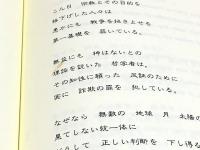 こん日 宗教とその目的を
格下げした人々は
愚かにも 戦争を招きよせる
第一基礎を 築いている。
無妄にも 神はないとの
理論を説いた 哲学者は、
その知性に頼った 反証のために
実に 詐欺の罪を 犯している。
なぜなら 無数の 地球 月 太陽の
果てしない統一体に
正しい判断を 下し得る